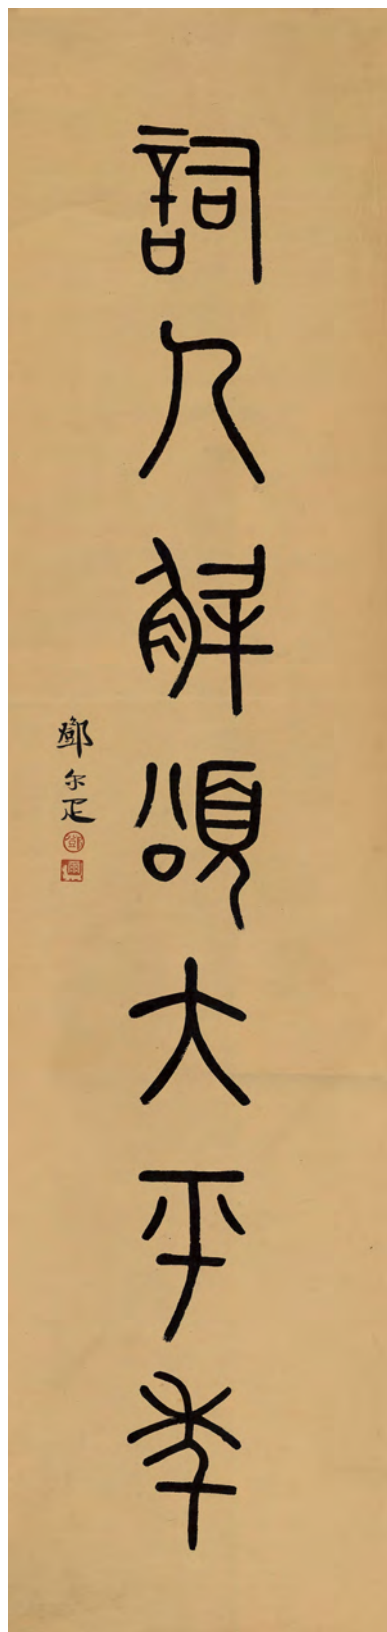 詞人解頌大平年
鄧尔疋
鄧